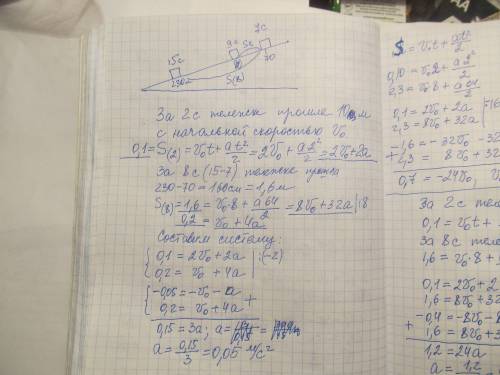 15с
7с
9с
5с
70
230
S(8)
За 2с тележка прошла 10 см
с начальной скоростью V₀
0,1 = S(2) = V₀t + at²/2 = 2V₀ + a2²/2 = 2V₀+2a
За 8с (15-7) тележка прошла
230-70 = 160см = 1,6м
S(8) = 1,6 = V₀·8 + a64/2 = 8V₀+32a |:8
0,2 = V₀ + 4a
Составим систему:
0,1 = 2V₀+2a |:(-2)
0,2 = V₀ + 4a
-0,05 = -V₀ - a
0,2 = V₀ + 4a +
0,15 = 3a; a =
a = 0,15/3 = 0,05 м/с²
S = V₀t + at²/2
0,10 = V₀2 + a2²/2
2,3 = V₀8 + a64/2
0,1 = 2V₀ + 2a
2,3 = 8V₀ + 32a
-1,6 = -32V₀ -32
+ 2,3 = 8V₀ + 32
0,7 = -24V₀,
За 2с теле
0,1 = V₀t +
За 8с
1,6 = V₀·8 +
0,1 = 2V₀+2
1,6 = 8V₀+32
-0,4 = -8V₀-8
+ 1,6 = 8V₀+32
1,2 = 24a
a = 1,2